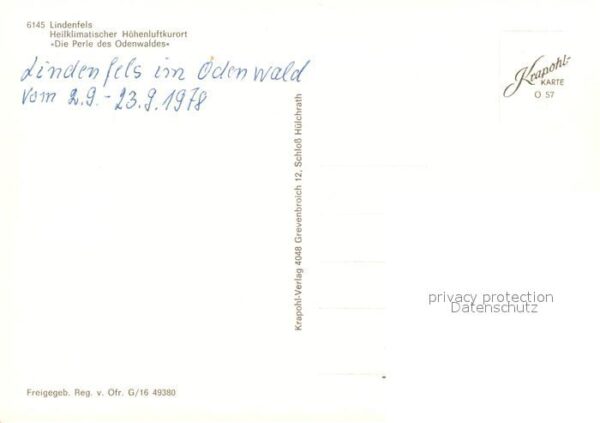 6145 Lindenfels
Heilklimatischer Höhenluftkurort
«Die Perle des Odenwaldes»
Lindenfels im Odenwald
vom 2.9. - 23.9.1978
Krapohl-
KARTE
O 57
Krapohl-Verlag 4048 Grevenbroich 12, Schloß Hülchrath
privacy protection
Datenschutz
Freigegeb. Reg. v. Ofr. G/16 49380